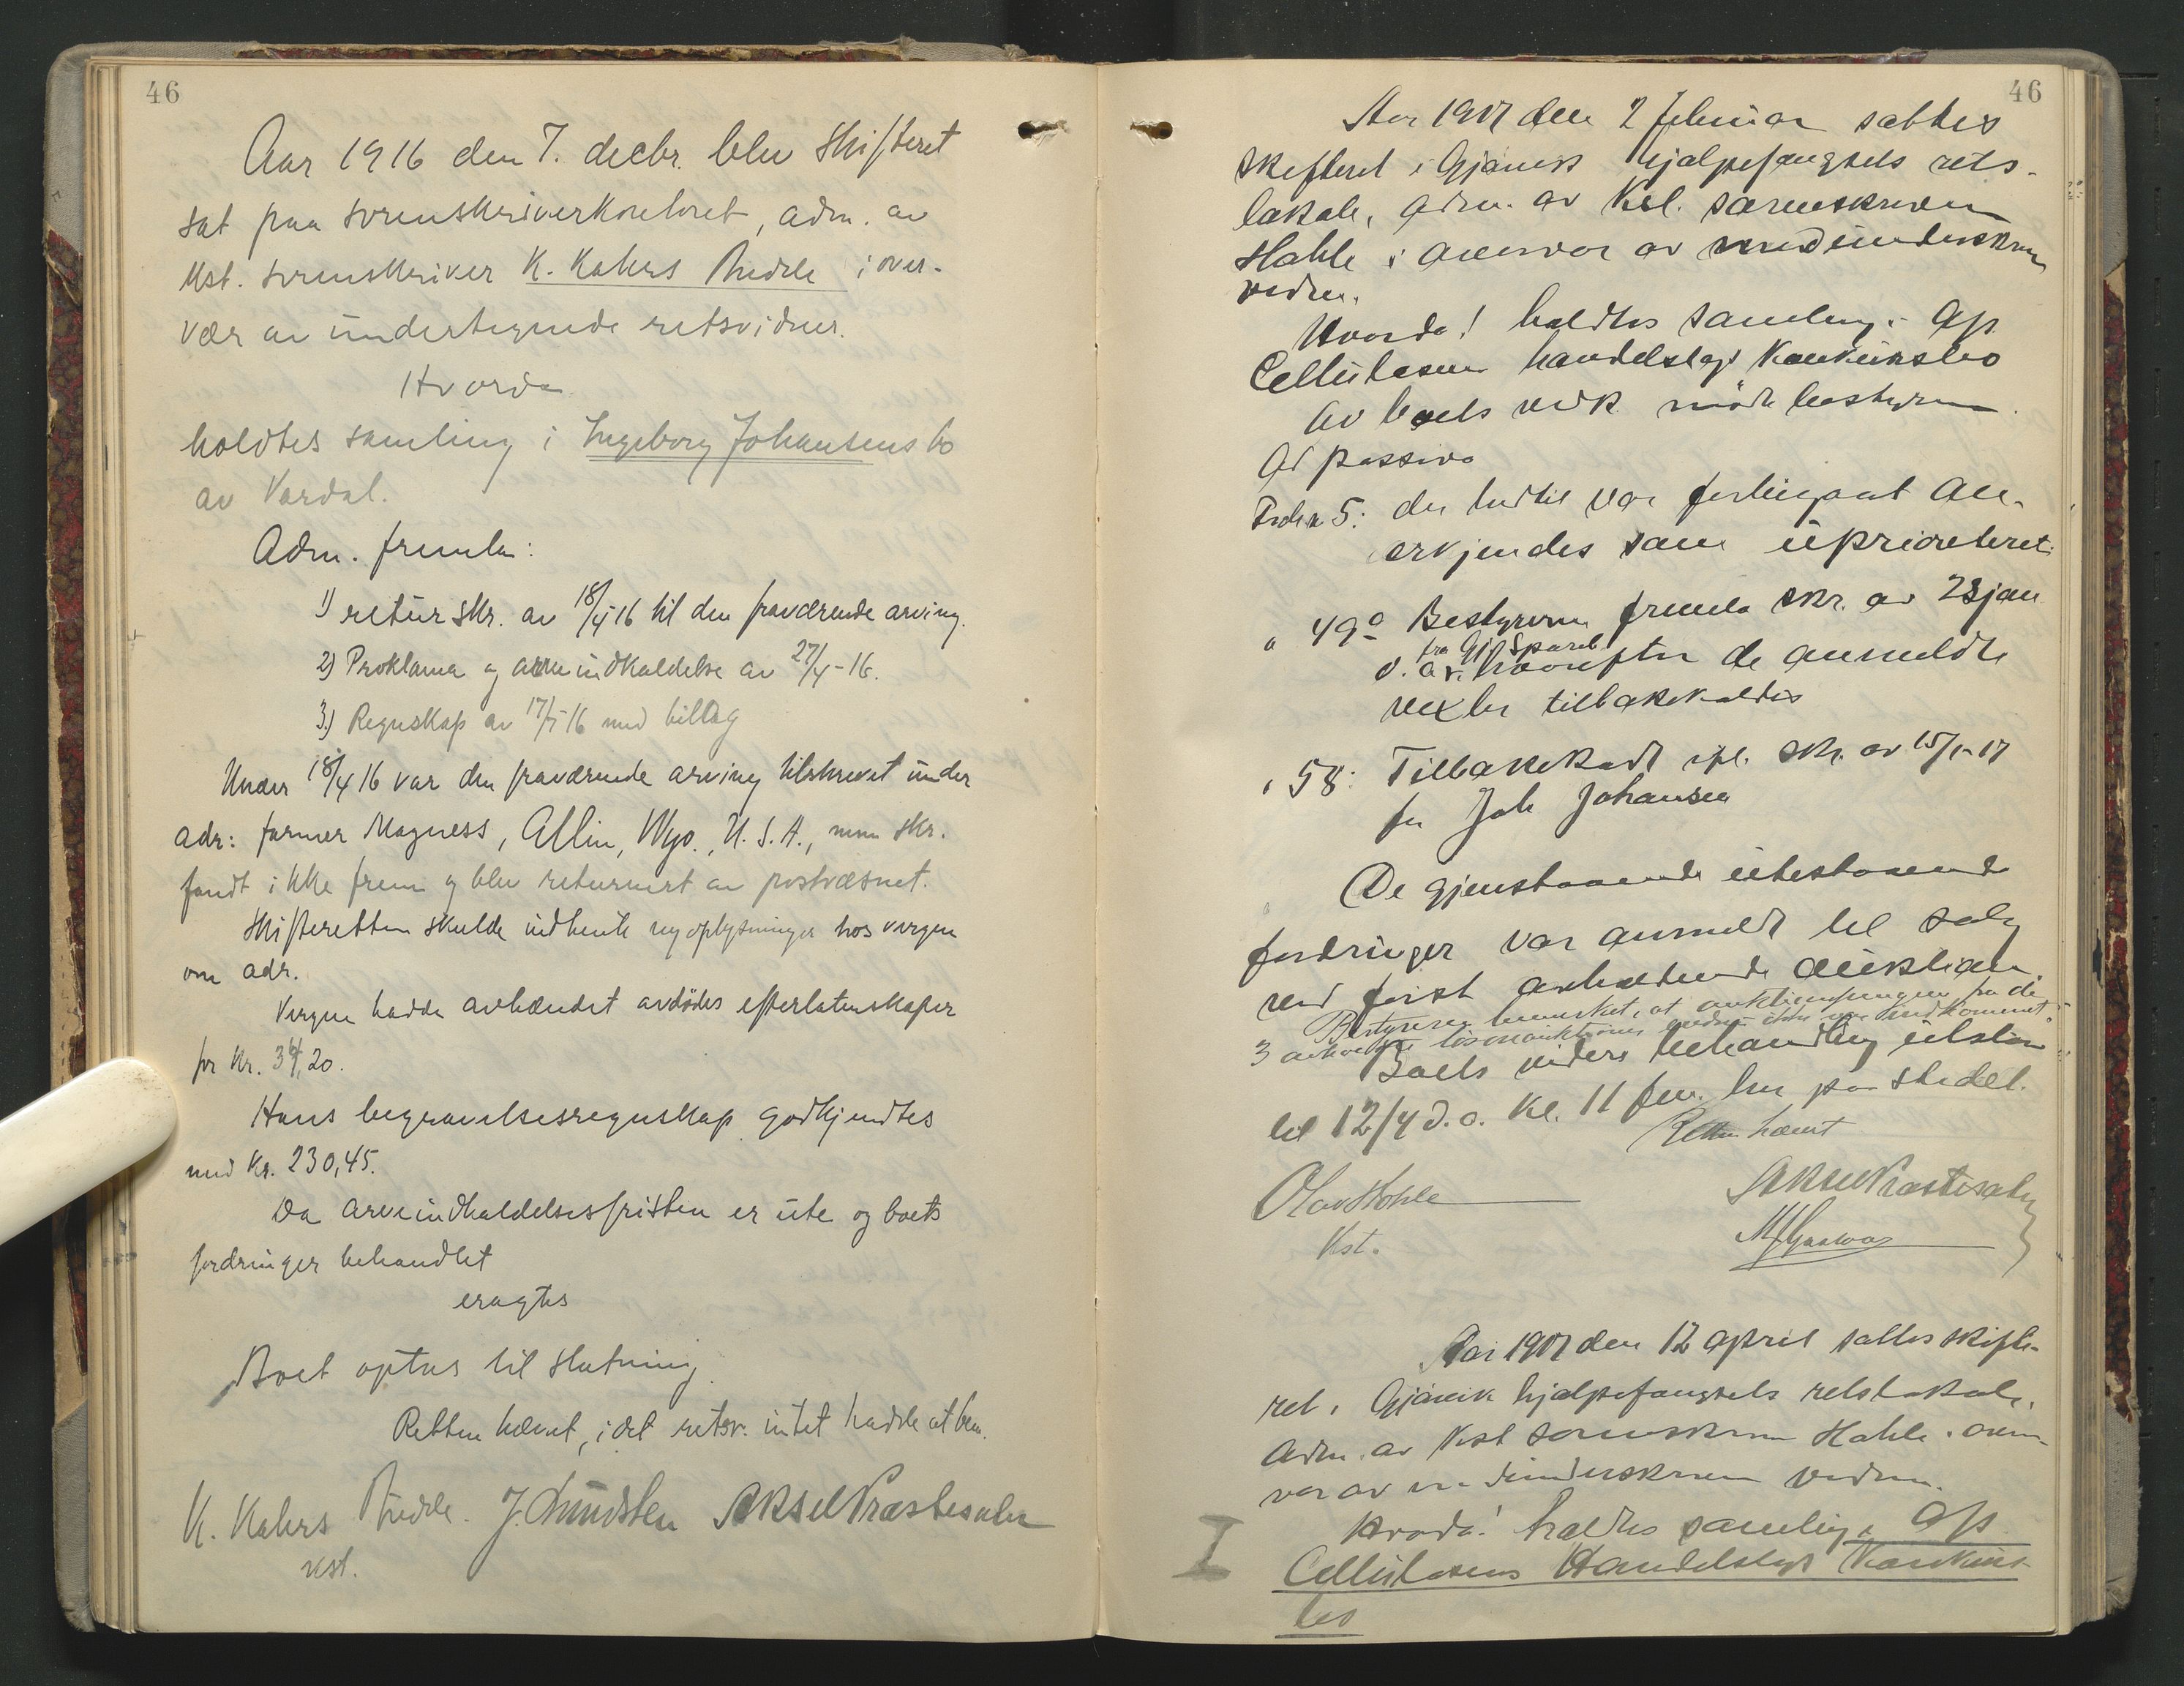 46
Aar 1916 den 7. decbr. blev skifteret
sat paa sorenskriverkontoret, adm. av
kst. sorenskriver K. Kahrs Budde i over-
vær av undertegnede retsvidner.
Hvorda
holdtes samling i Ingeborg Johansens bo
av Vardal.
Adm. fremla:
1) retur skr. av 18/4 16 til den fraværende arving.
2) Proklama og arveindkaldelse av 27/4-16.
3) Regnskap av 17/5 16 med billag
Under 18/4 16 var den fraværende arving tilskrevet under
adr: farmer Magness, Allin, Wyo., U.S.A., men skr.
fandt ikke frem og blev returnert av postvæsnet.
Skifteretten skulde indhente ny oplysninger hos vergen
om adr.
Vergen hadde avhændet avdødes efterlatenskaper
for kr. 34,20.
Hans begravelsesregnskap godkjendtes
med kr. 230,45.
Da arveindkaldelsesfristen er ute og boets
fordringer behandlet
eragtes
Boet optas til slutning.
Retten hævet, idet retsv. intet hadde at bem.
K. Kahrs Budde. J. Lundsten Aksel Præstesater
kst.
46
Aar 1917 den 2 februar sattes
skifteret i Gjøviks hjælpefængsels rets-
lokale, adm. av kst. sorenskriver
Hohle i overvær av medunderskrevne
vidner.
Hvorda! holdtes samling i A/s
Cellulosens handelslags konkursbo
Av boets vedk. møtte bestyreren.
Ad passiva
Post 5: der hittil var forlangt an-
erkjendes som uprioriteret.
" 49a Bestyreren fremla skr. av 23 jan
fra Gj. Spareb
d. a. hvorefter de anmeldte
vexler tilbakekaldes
" 58: Tilbakekaldt ifl. skr. av 15/1-17
fra Joh Johansen
De gjenstaaende utestaaende
fordringer var anmeldt til salg
ved først avholdende auktion.
Bestyreren bemerket, at auktionspengene fra de
3 avholdte løsøreauktioner endnu ikke var indkommet.
Boets videre behandling utstaar
til 12/4 d.a. kl. 11 fm. her paa stedet.
Retten hævet
Olav Hohle
Kst.
Aksel Præstesater
Aar 1917 den 12 april sattes skifte-
ret i Gjøvik hjælpefængsels retslokale,
adm. av kst sorenskriver Hohle i over-
vær av medunderskrevne vidner.
Hvorda! holdtes samling i A/s
Cellulosens Handelslags Konkurs-
bo
I